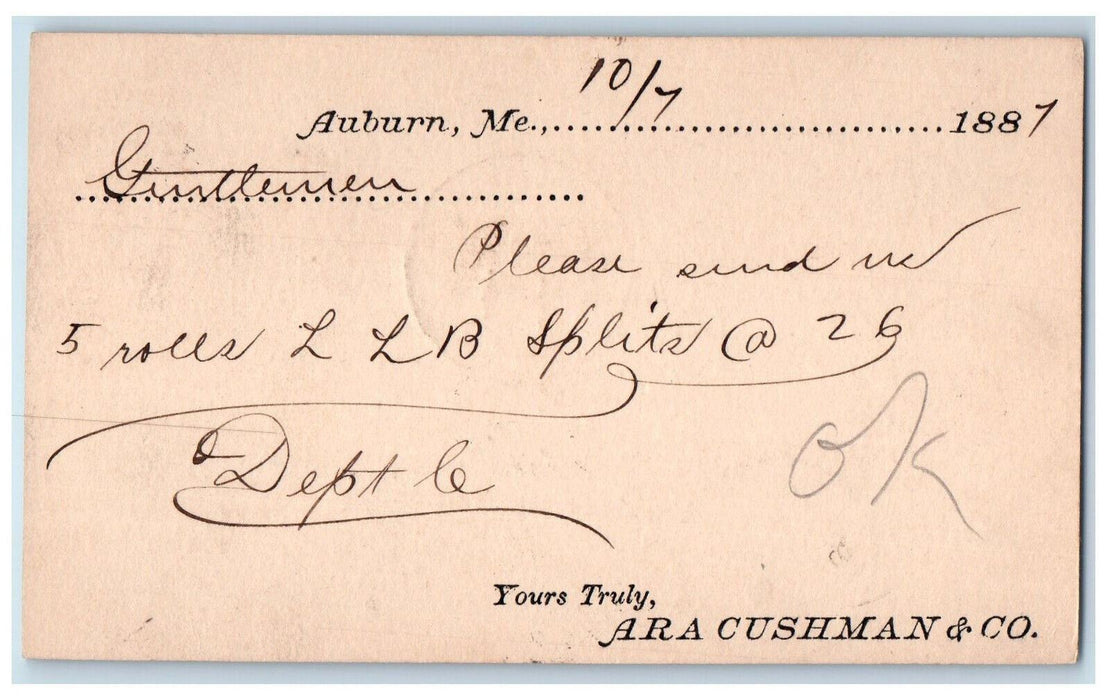 10/7
Auburn, Me., 1887
Gentlemen
Please send us
5 rolls L L B Splits @ 26
Dept C
OK
Yours Truly,
ARA CUSHMAN & CO.